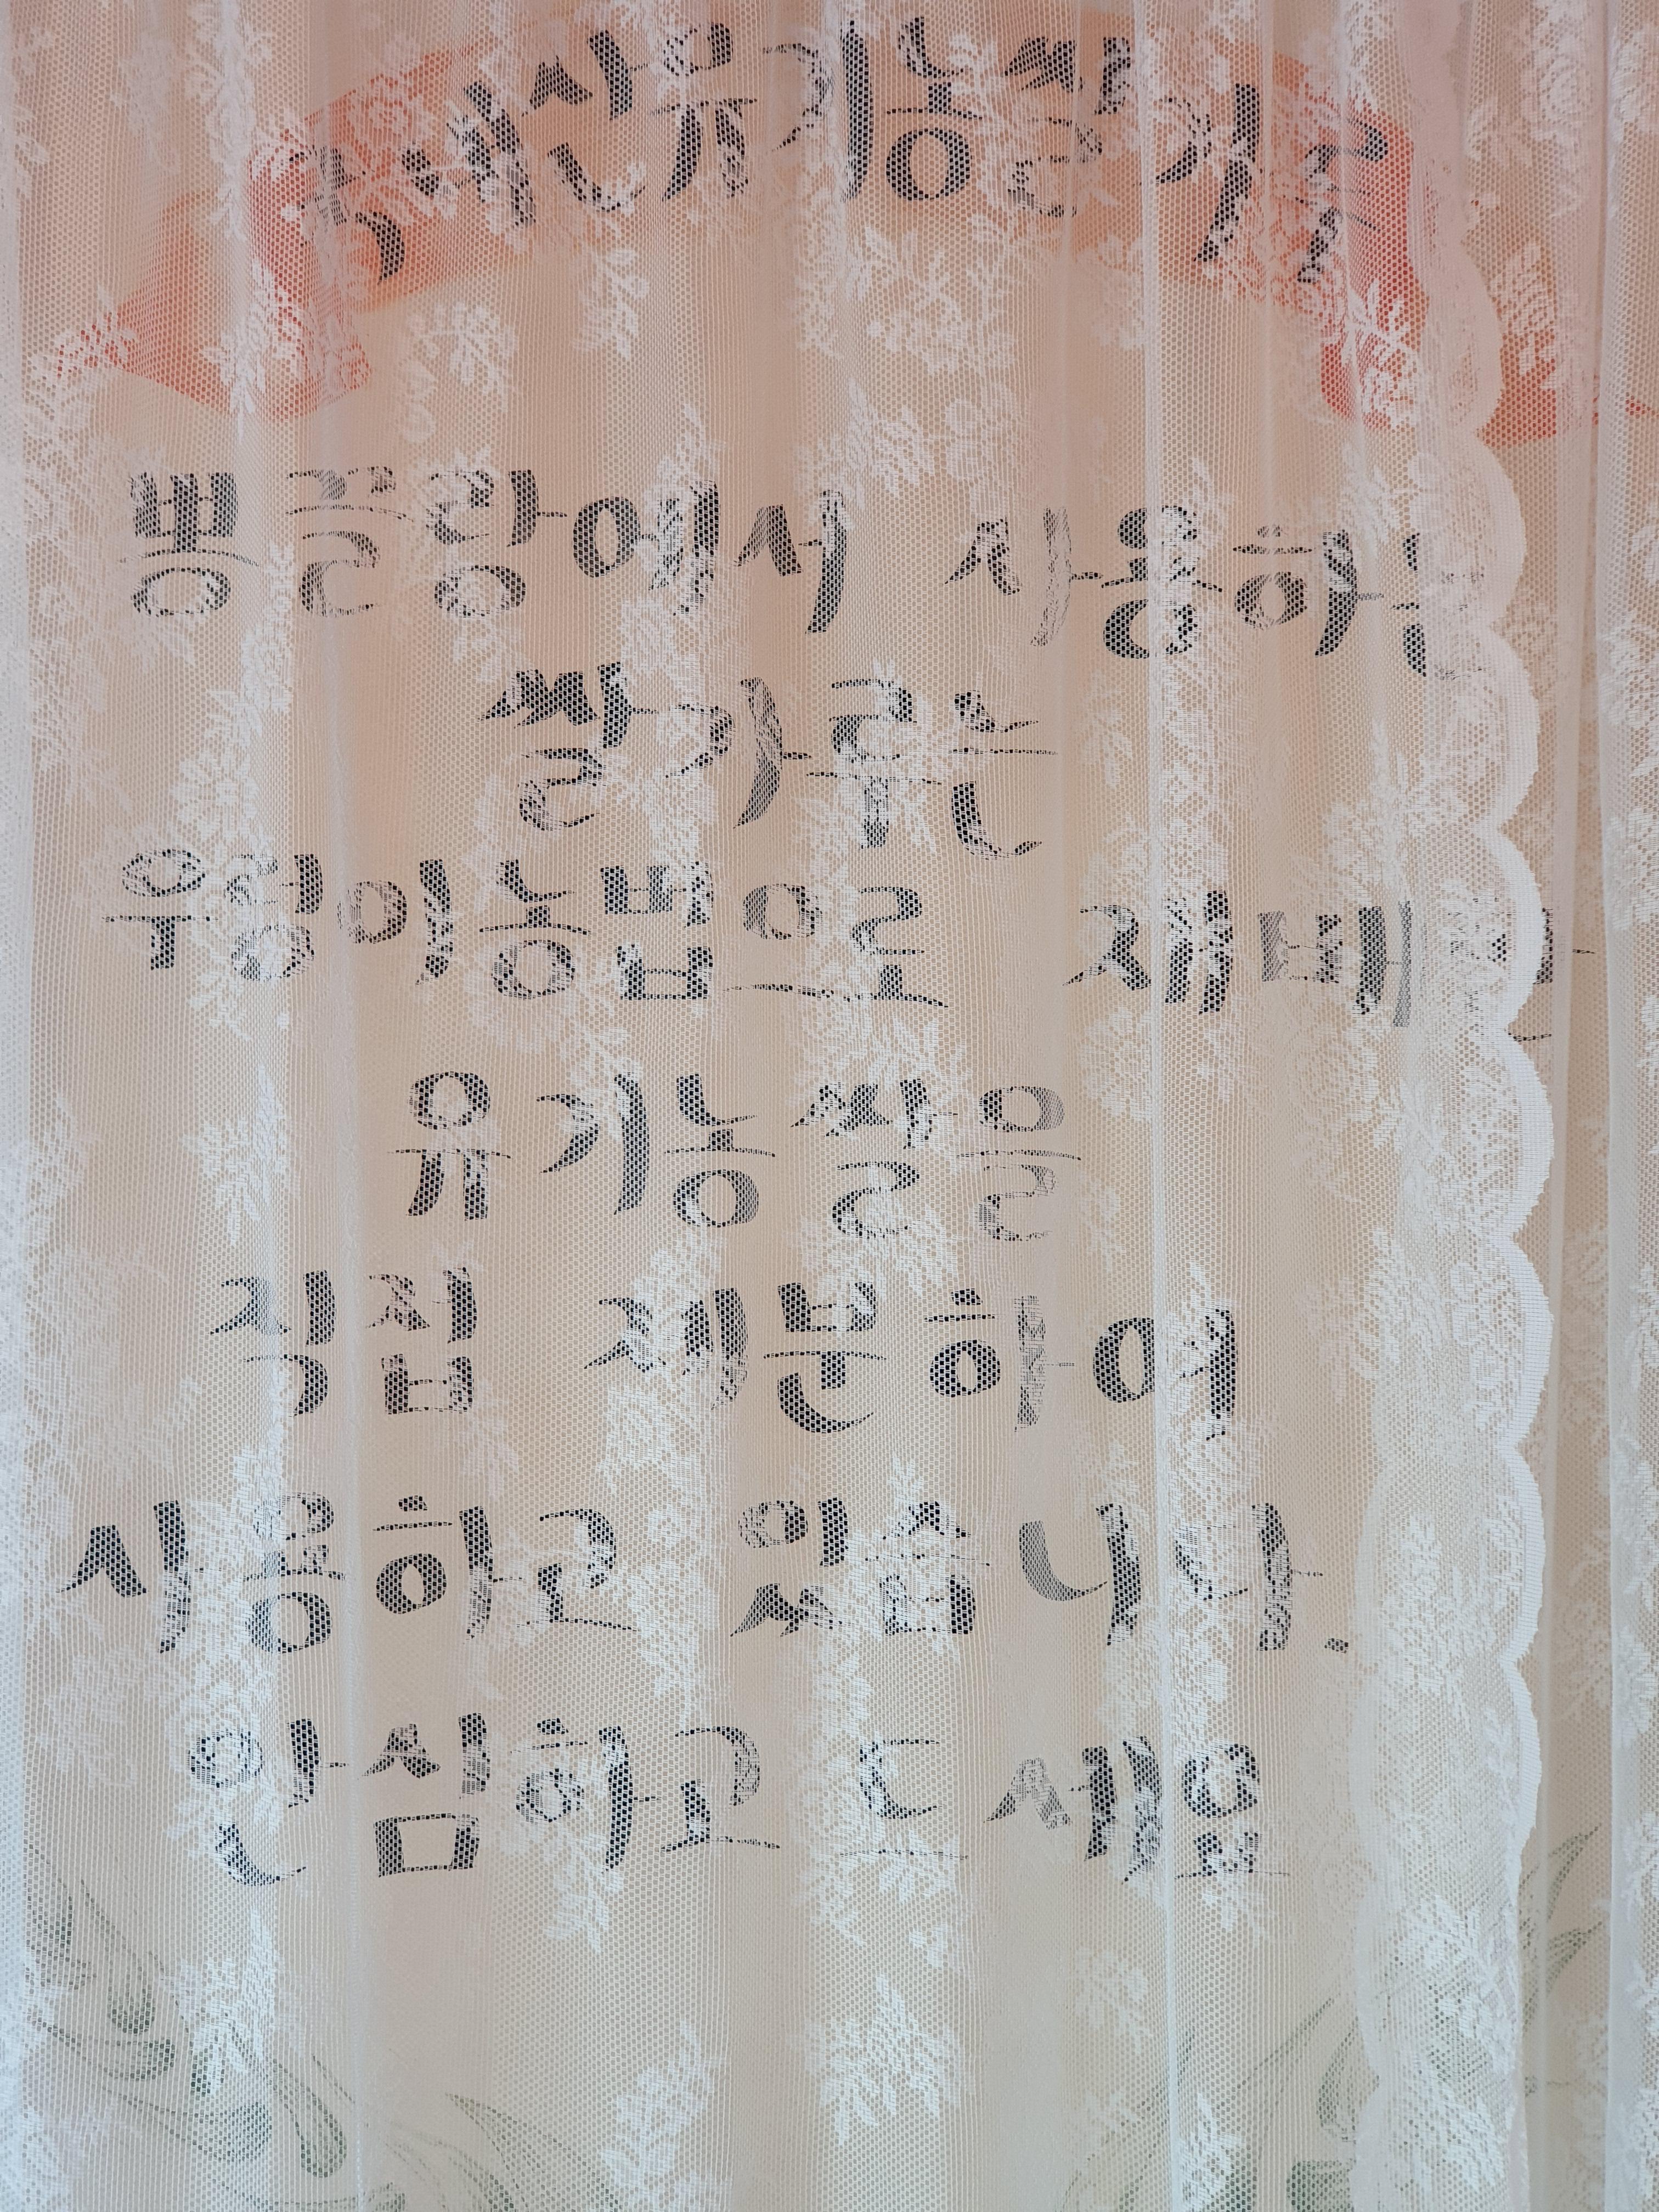 국내산유기농쌀가루
사용하는
쌀가루는
우렁이농법으로 재배한
유기농쌀을
직접 제분하여
사용하고 있습니다.
안심하고 드세요